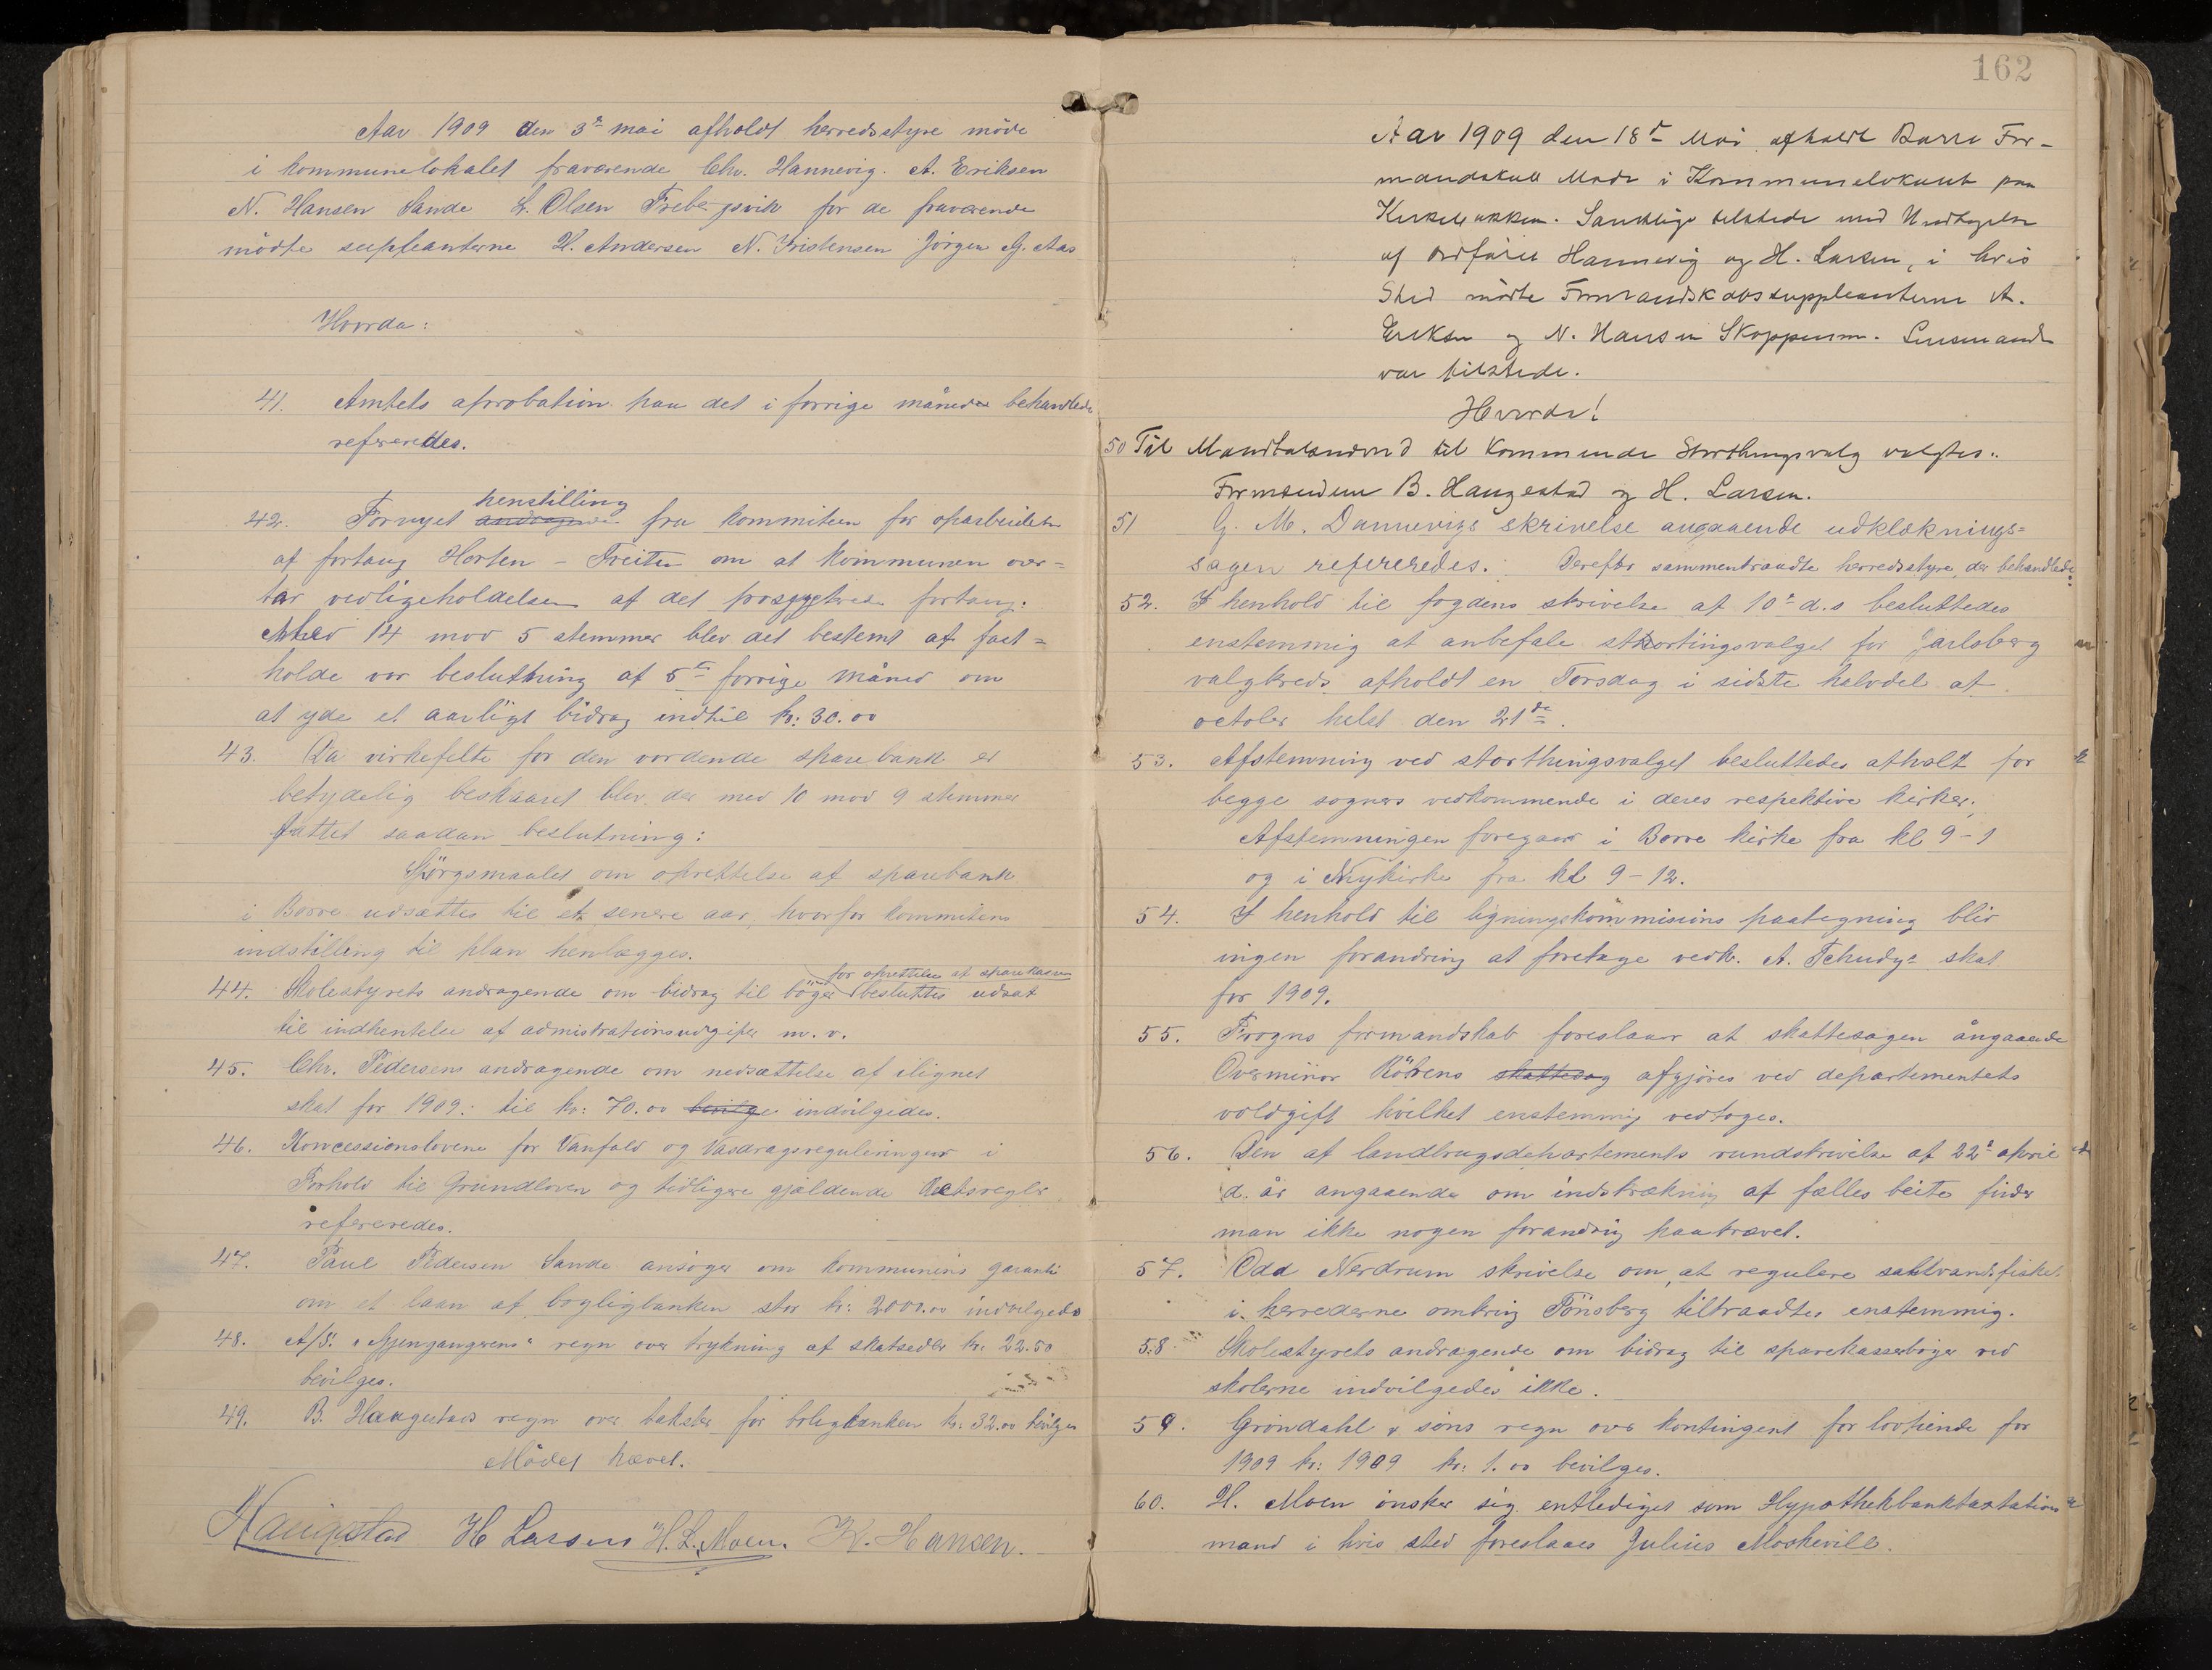 Aar 1909 den 3de mai afholdt herredsstyre möde
i kommunelokalet fraværende Chr. Hannevig. A. Eriksen
N. Hansen Sande L. Olsen Frebergsvik for de fraværende
mödte suppleanterne H. Andersen N. Kristensen Jörgen G. Aas
Hvorda:
41. Amtets aprobation paa det i forrige måneder behandlede
refereredes.
henstilling
42. Fornyet andragende fra kommiteen for oparbeidelse
af fortaug Horten – Freiten om at kommunen over=
tar vedligeholdelsen af det prosjekterede fortaug:
Med 14 mod 5 stemmer blev det bestemt at fast=
holde vor beslutning af 5te forrige måned om
at yde et aarligt bidrag indtil kr: 30.00
43. Da virkefelte for den vordende sparebank er
betydelig beskaaret blev der med 10 mod 9 stemmer
fattet saadan beslutning:
Spörgsmaalet om oprettelse af sparebank
i Borre udsættes til et senere aar, hvorfor kommiteens
indstilling til plan henlægges.
for oprettelse af sparekasser
44. Skolestyrets andragende om bidrag til böger besluttes udsat
til indhentelse af admistrationsudgifter m. v.
45. Chr. Pedersens andragende om nedsættelse af ilignet
skat for 1909: til kr: 70.00 bevilge indvilgedes.
46. Koncessionslovene for Vanfald og Vasdragsreguleringer i
Forhold til Grundloven og tidligere gjældende Retsregler
refereredes.
47. Paul Pedersen Sande ansöger om kommunens garanti
om et laan af boligbanken stor kr: 2000.00 indvilgedes
48. A/S. "Gjengangeren" regn over trykning af skatsedler kr: 22.50
bevilges.
49. B. Haugestads regn over takster for boligbanken kr: 32.00 bevilges
Mödet hævet.
Haugestad H Larsen H. L. Moen. K. Hansen.
162
Aar 1909 den 18de Mai afholdt Borre For-
mandskab Möde i Kommunelokalet paa
Kirkebakken. Samtlige tilstede med Undtagelse
af Ordförer Hannevig og H. Larsen, i hvis
Sted mödte Formandskabssuppleanterne A.
Eriksen og N. Hansen Skoppum. Lensmanden
var tilstede.
Hvorda!
50 Til Mandtalsudvid til Kommende Storthingsvalg valgtes:
Formændene B. Haugestad og H. Larsen.
51 G. M. Dannevigs skrivelse angaaende udklæknings=
sagen refereredes. Derefter sammentraadte herredsstyre, der behandlede:
52. I henhold til fogdens skrivelse af 10de d.s besluttedes
enstemmig at anbefale stortingsvalget for Jarlsberg
valgkreds afholdt en Torsdag i sidste halvdel af
october helst den 21de.
53. Afstemning ved storthingsvalget besluttedes afholt for
begge sogners vedkommende i deres respektive kirker.
Afstemningen foregaar i Borre kirke fra kl 9-1
og i Nykirke fra kl 9-12.
54. I henhold til ligningskommisions paategning blir
ingen forandring at foretage vedk. A. Tchudys skat
for 1909.
55. Frogns formandskab foreslaar at skattesagen ångaaende
Overminör Röhrens skattesag afgjöres ved departementets
voldgift hvilket enstemmig vedtoges.
56. Den af landbrugsdepartements rundskrivelse af 22de april
d. år angaaende om indskrækning af fælles beite finder
man ikke nogen forandrig paakrævet.
57. Odd Nerdrum skrivelse om at regulere saltvandsfisket
i herrederne omkring Tönsberg tiltraadtes enstemmig.
58 Skolestyrets andragende om bidrag til sparekassebøger ved
skolerne indvilgedes ikke.
59. Gröndahl & söns regn over kontingent for lovtiende for
1909 kr: 1909 kr: 1.00 bevilges.
60. H. Moen önsker sig entlediget som Hypothekbanktaxtations
mand i hvis sted foreslaaes Julius Moskevill.